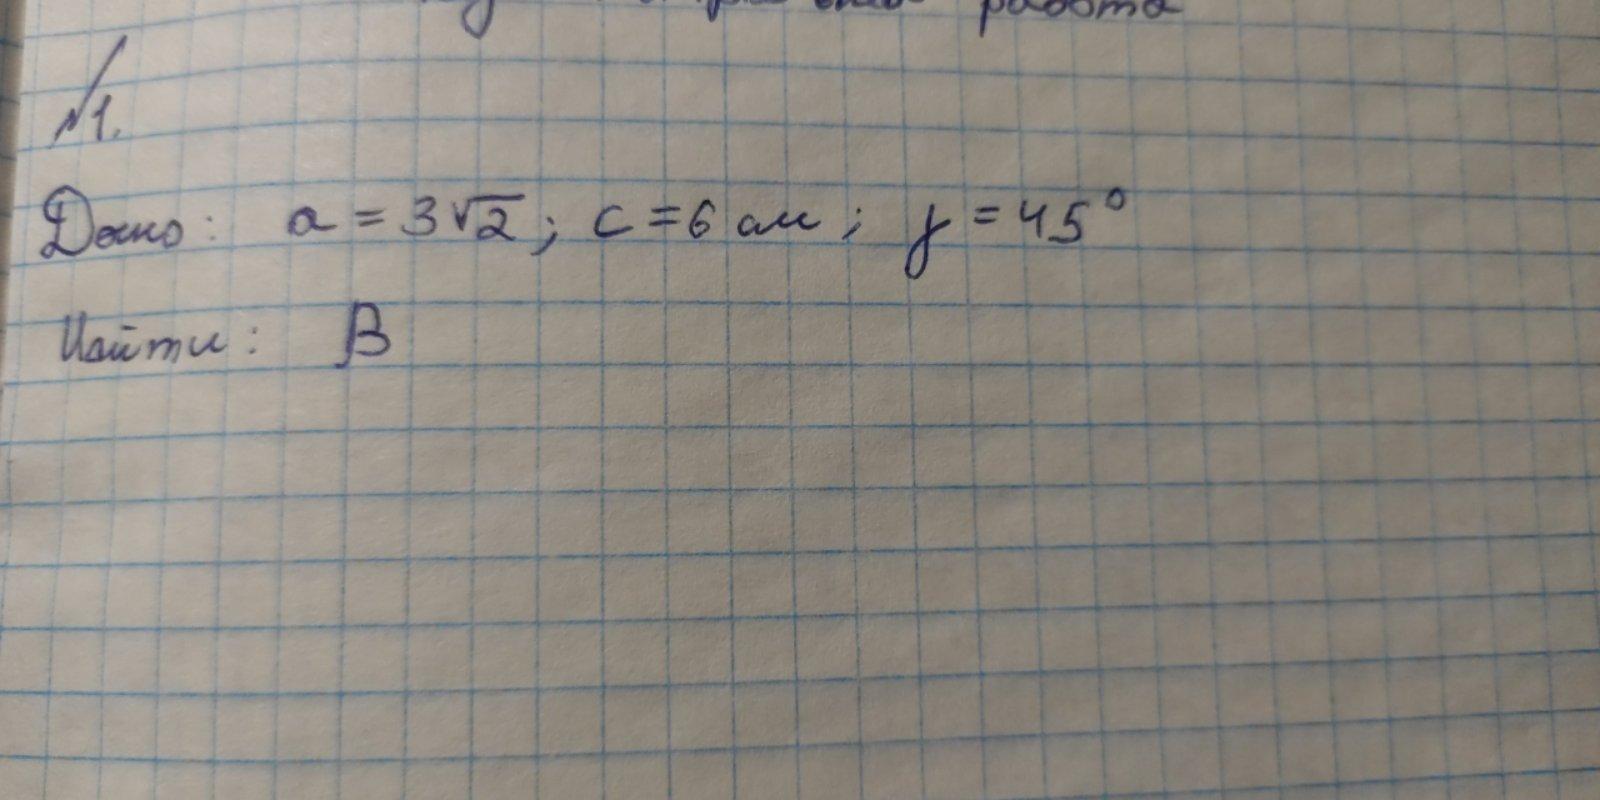 работа
№1.
Дано: a = 3√2; c = 6 см; γ = 45°
Найти: β